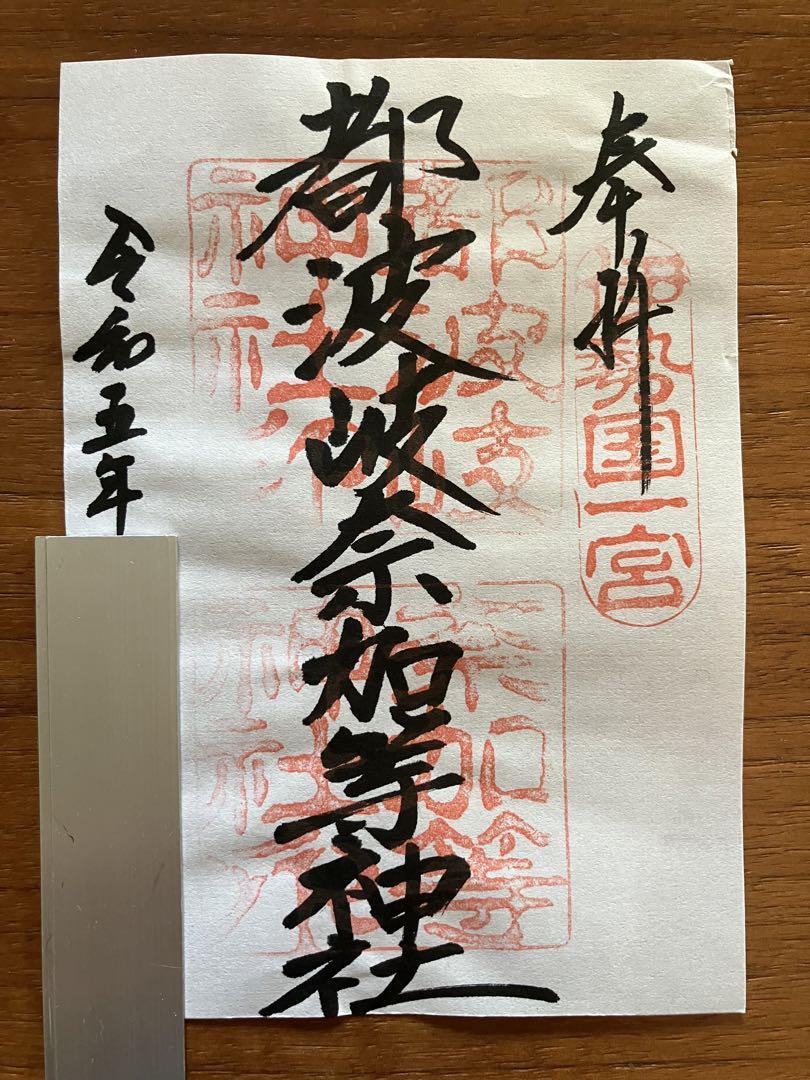 奉拝
伊勢国一宮
都波岐奈加等神社
令和五年